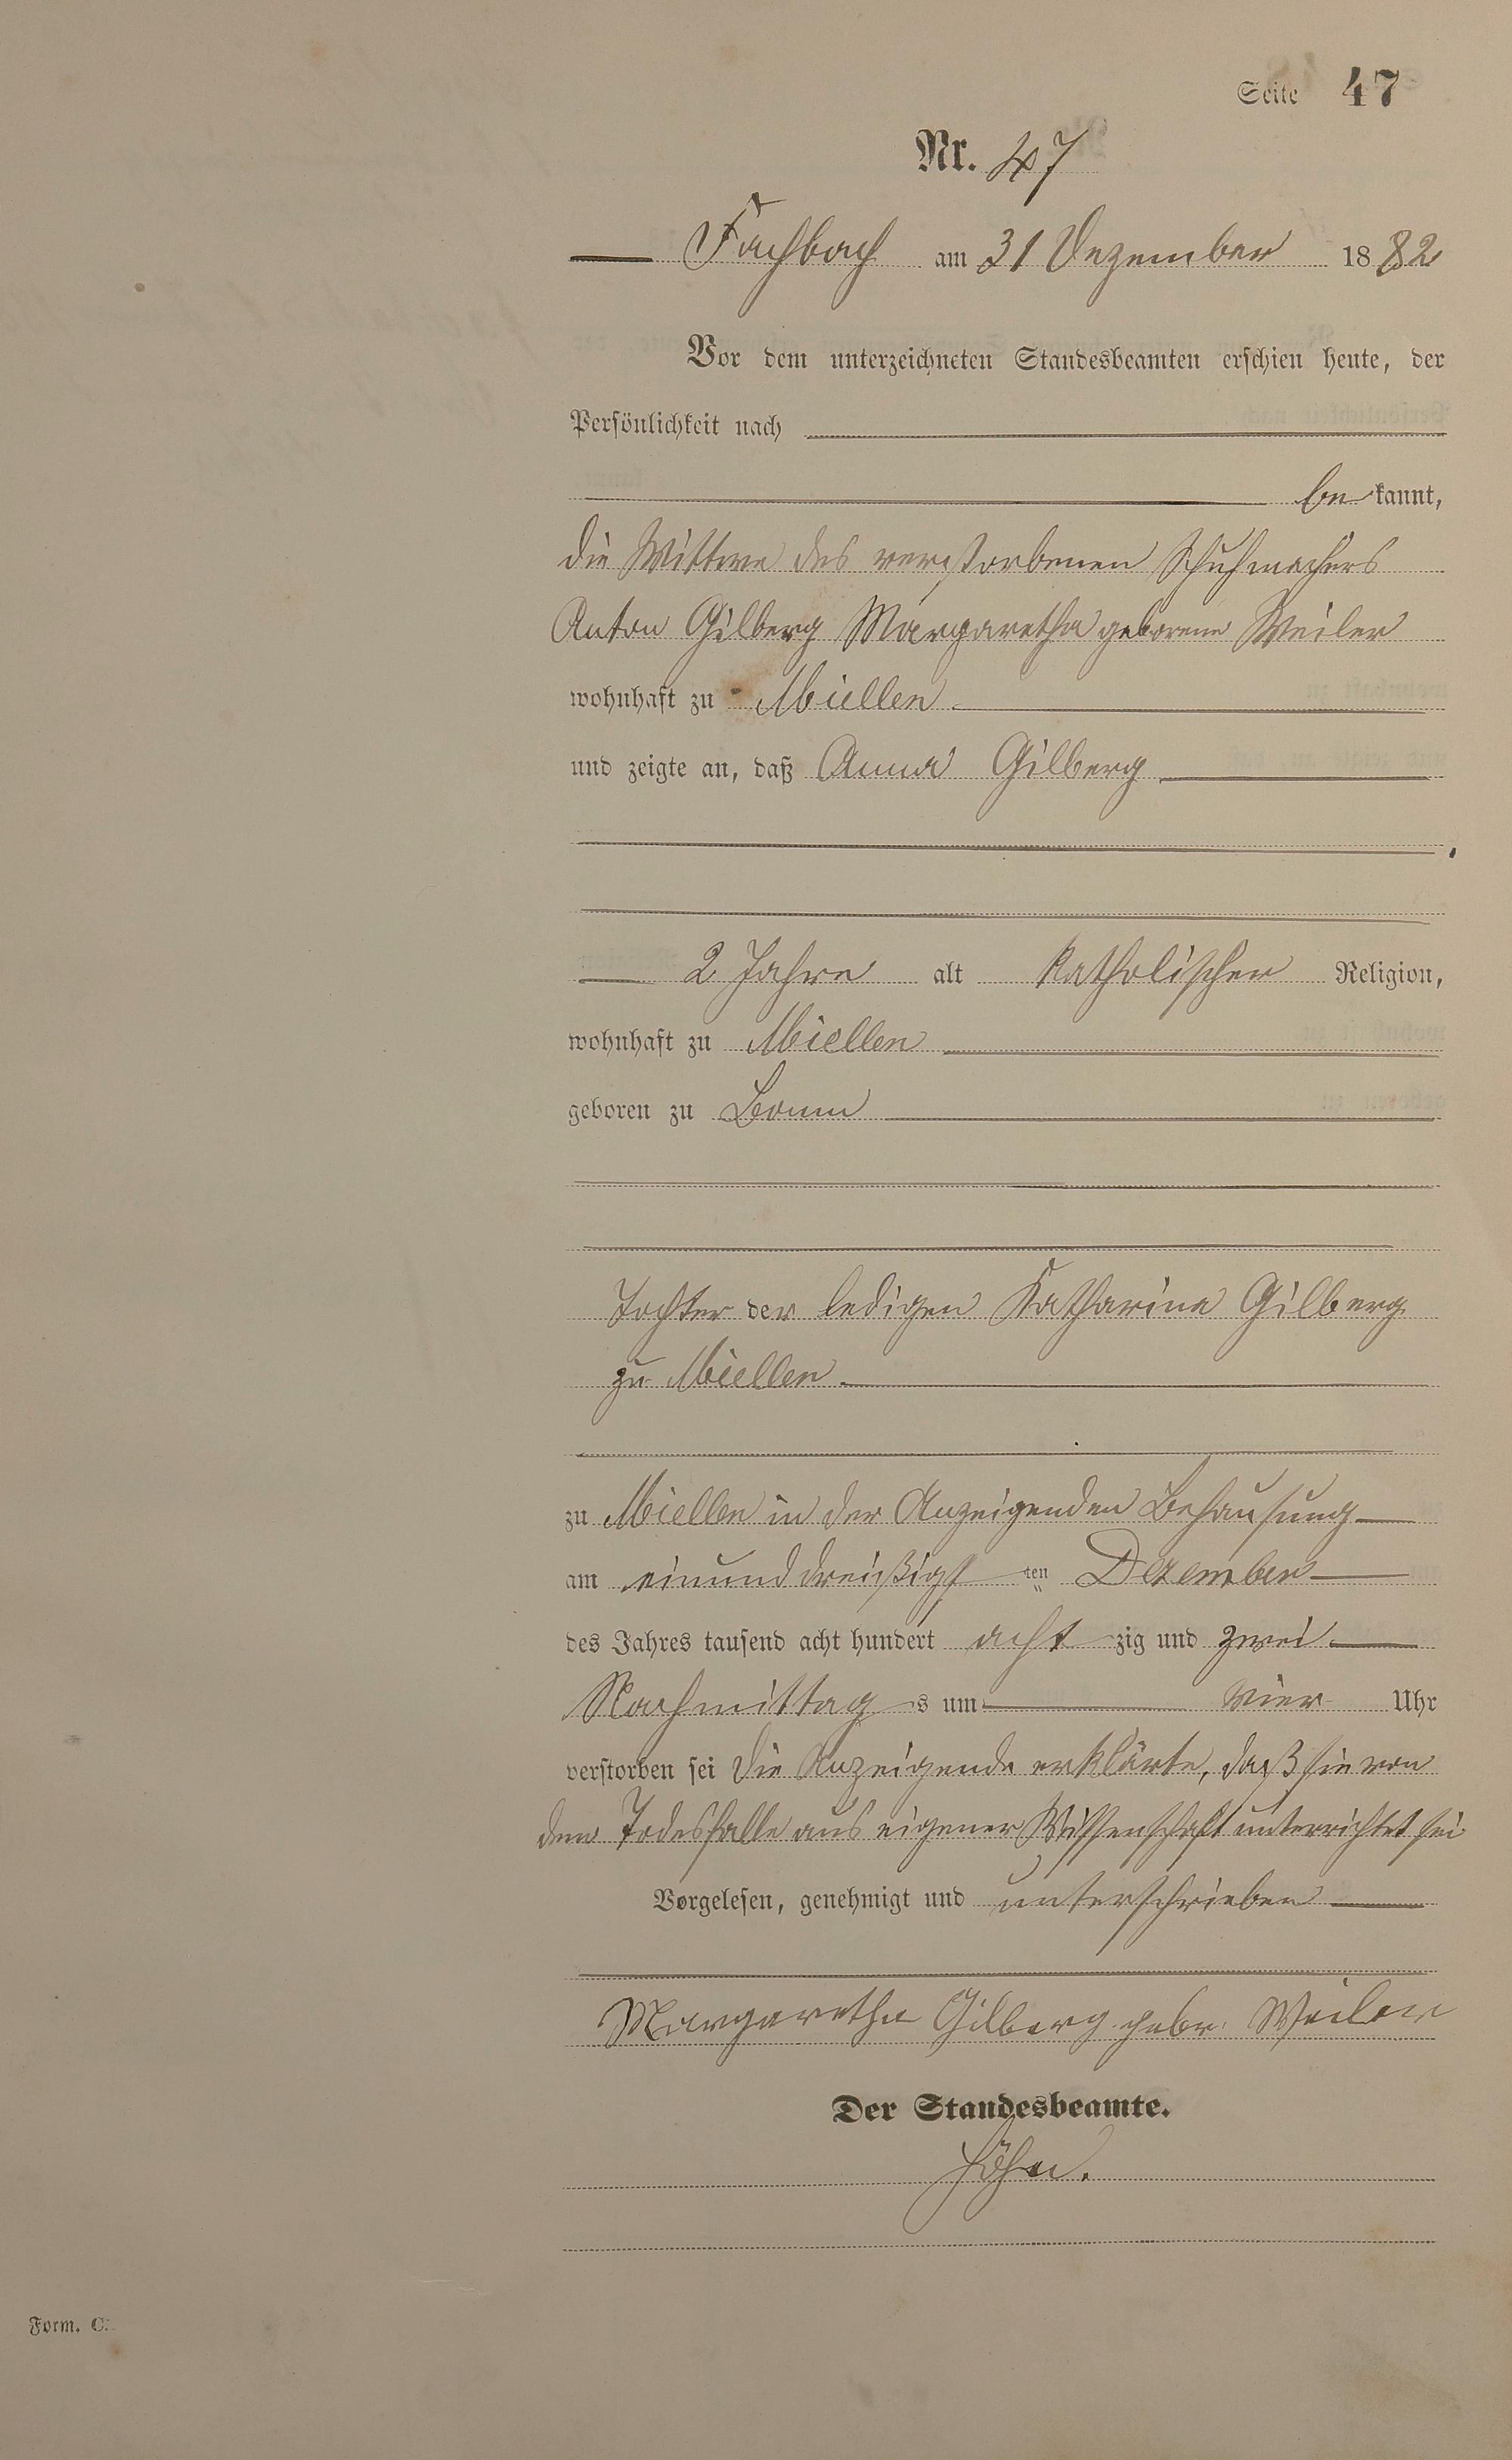 Seite 47
Nr. 47
Fachbach am 31 Dezember 1882
Vor dem unterzeichneten Standesbeamten erschien heute, der
Persönlichkeit nach
bekannt,
die Wittwe des verstorbenen Schuhmachers
Anton Gilberg Margaretha geborene Weiler
wohnhaft zu Miellen
und zeigte an, daß Anna Gilberg
2 Jahre alt katholischer Religion,
wohnhaft zu Miellen
geboren zu Bonn
Tochter der ledigen Katharina Gilberg
zu Miellen
zu Miellen in der Anzeigenden Behausung
am einunddreißigsten Dezember
des Jahres tausend acht hundert achtzig und zwei
Nachmittags um vier Uhr
verstorben sei Die Anzeigende erklärte, daß sie von
dem Todesfalle aus eigener Wissenschaft unterrichtet sei
Vorgelesen, genehmigt und unterschrieben
Margaretha Gilberg gebr. Weiler
Der Standesbeamte.
Höhn.
Form. C.